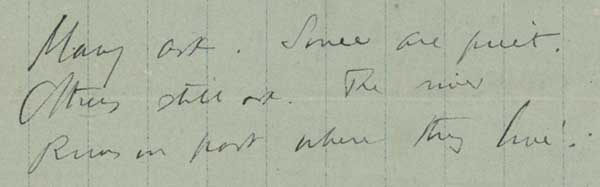 Many ask. Some are quiet.
Others still ask. The river
Runs on past where they live'.